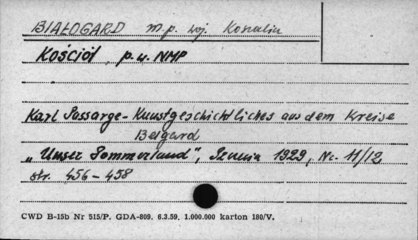 BIAŁOGARD m.p. woj. Koszalin
KOŚCIÓŁ, p.w. NMP
Karl Rossarge - Kunstgeschichtliches aus dem Kreise
Belgard
„Unser Pommerland",  1929, Nr. 11/12
str. 456-458
CWD B-15b Nr 515/P. GDA-809. 6.3.59. 1.000.000 karton 180/V.